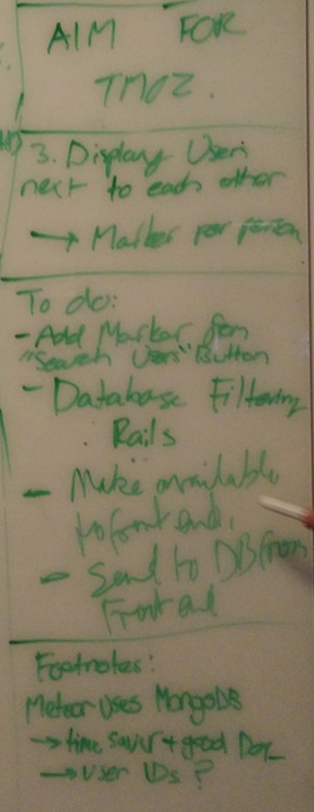 AIM FOR
TMOZ.
3. Display Users
next to each other
→ Marker per person
To do:
- Add Marker from
"Search Users" Button
- Database Filtering
. Rails
- Make available
to front end.
- Send to DB from
Front end
Footnotes:
Meteor uses MongoDB
→ time saver + good
→ User IDs?